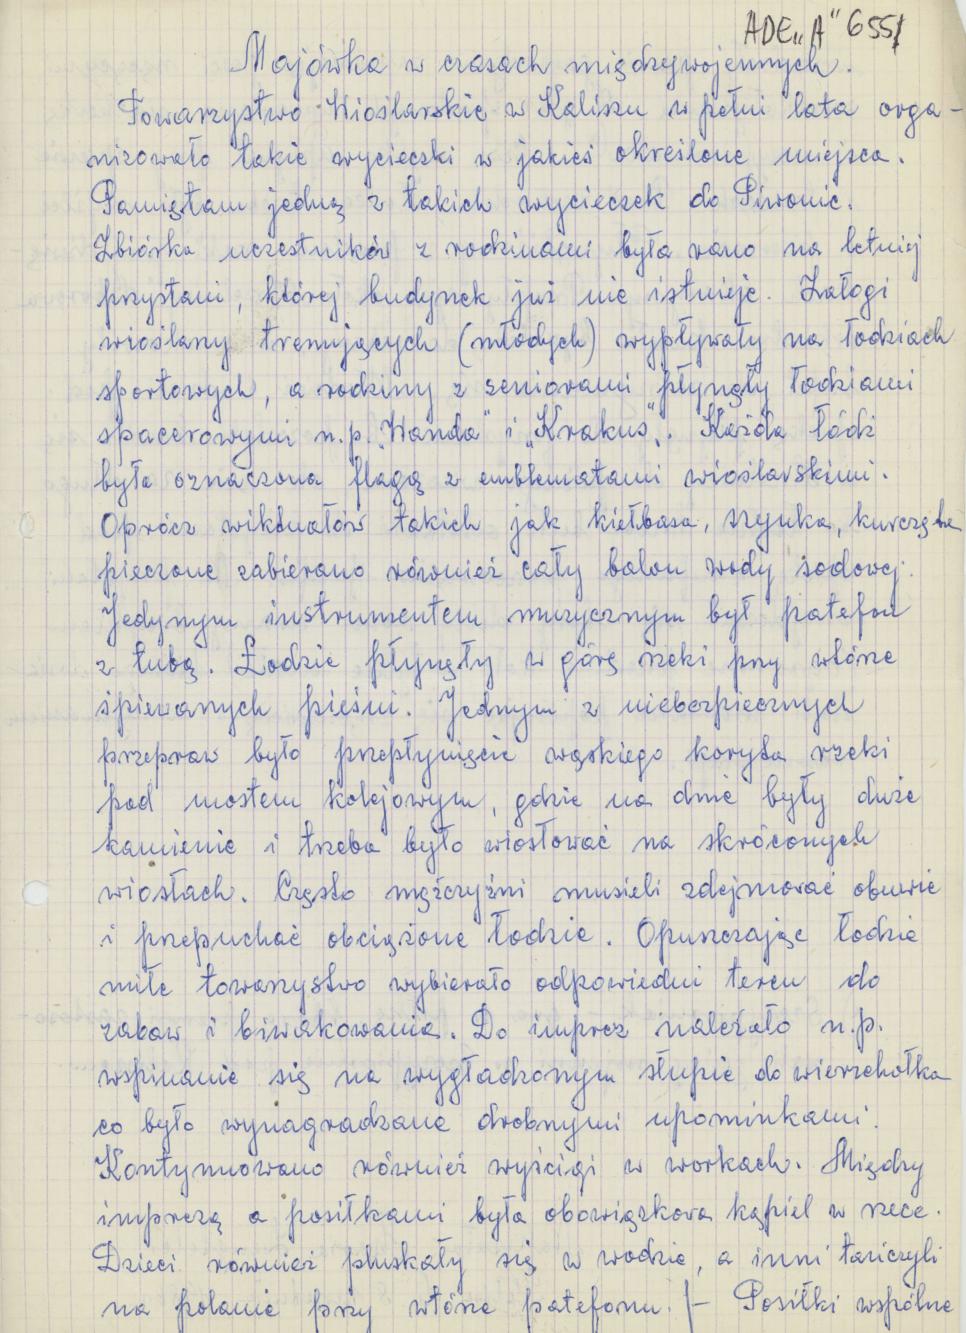 ADE „A" 655/
Majówka w czasach międzywojennych.
Towarzystwo Wioślarskie w Kaliszu w pełni lata orga-
nizowało takie wycieczki w jakieś określone miejsca.
Pamiętam jedną z takich wycieczek do Piwonic.
Zbiórka uczestników z rodzinami była rano na letniej
przystani, której budynek już nie istnieje. Załogi
wioślany trenujących (młodych) wypływały na łodziach
sportowych, a rodziny z seniorami płynęły łodziami
spacerowymi n.p. „Wanda" i „Krakus„. Każda łódź
była oznaczona flagą z emblematami wioślarskimi.
Oprócz wiktuałów takich jak kiełbasa, szynka, kurczęta
pieczone zabierano również cały balon wody sodowej.
Jedynym instrumentem muzycznym był patefon
z tubą. Łodzie płynęły w górę rzeki przy wtórze
śpiewanych pieśni. Jednym z niebezpiecznych
przepraw było przepłynięcie wąskiego koryta rzeki
pod mostem kolejowym, gdzie na dnie były duże
kamienie i trzeba było wiosłować na skróconych
wiosłach. Często mężczyźni musieli zdejmować obuwie
i przepuchać obciążone łodzie. Opuszczając łodzie
miłe towarzystwo wybierało odpowiedni teren do
zabaw i biwakowania. Do imprez należało n.p.
wspinanie się na wygładzonym słupie do wierzchołka
co było wynagradzane drobnymi upominkami.
Kontynuowano również wyścigi w workach. Między
imprezą a posiłkami była obowiązkowa kąpiel w rzece.
Dzieci również pluskały się w wodzie, a inni tańczyli
na polanie przy wtórze patefonu. /– Posiłki wspólne